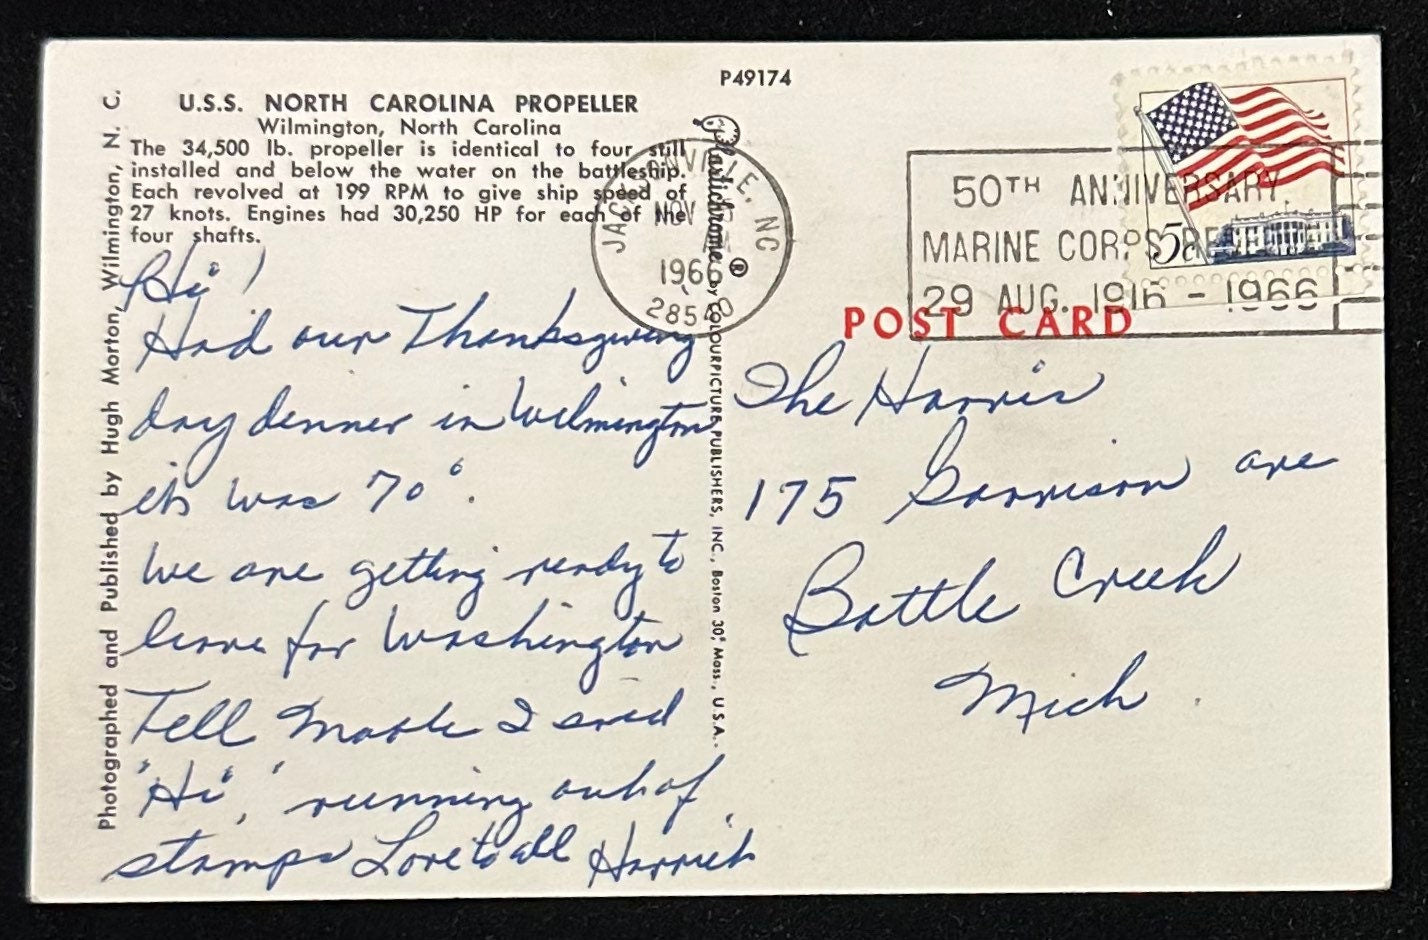 P49174
U.S.S. NORTH CAROLINA PROPELLER
Wilmington, North Carolina
The 34,500 lb. propeller is identical to four still
installed and below the water on the battleship.
Each revolved at 199 RPM to give ship speed of
27 knots. Engines had 30,250 HP for each of the
four shafts.
Photographed and Published by Hugh Morton, Wilmington, N. C.
Plastichrome ® by COLOURPICTURE PUBLISHERS, INC., Boston 30, Mass., U.S.A.
JACKSONVILLE, NC
NOV
AM
1966
28540
50TH ANNIVERSARY
MARINE CORPS RE
29 AUG. 1916 - 1966
5c
POST CARD
Hi!
Had our Thanksgiving
day dinner in Wilmington
it was 70°.
We are getting ready to
leave for Washington
Tell I said
"Hi", running out of
stamps Love to all Harriet
The Harris
175 Garrison ave
Battle Creek
Mich.